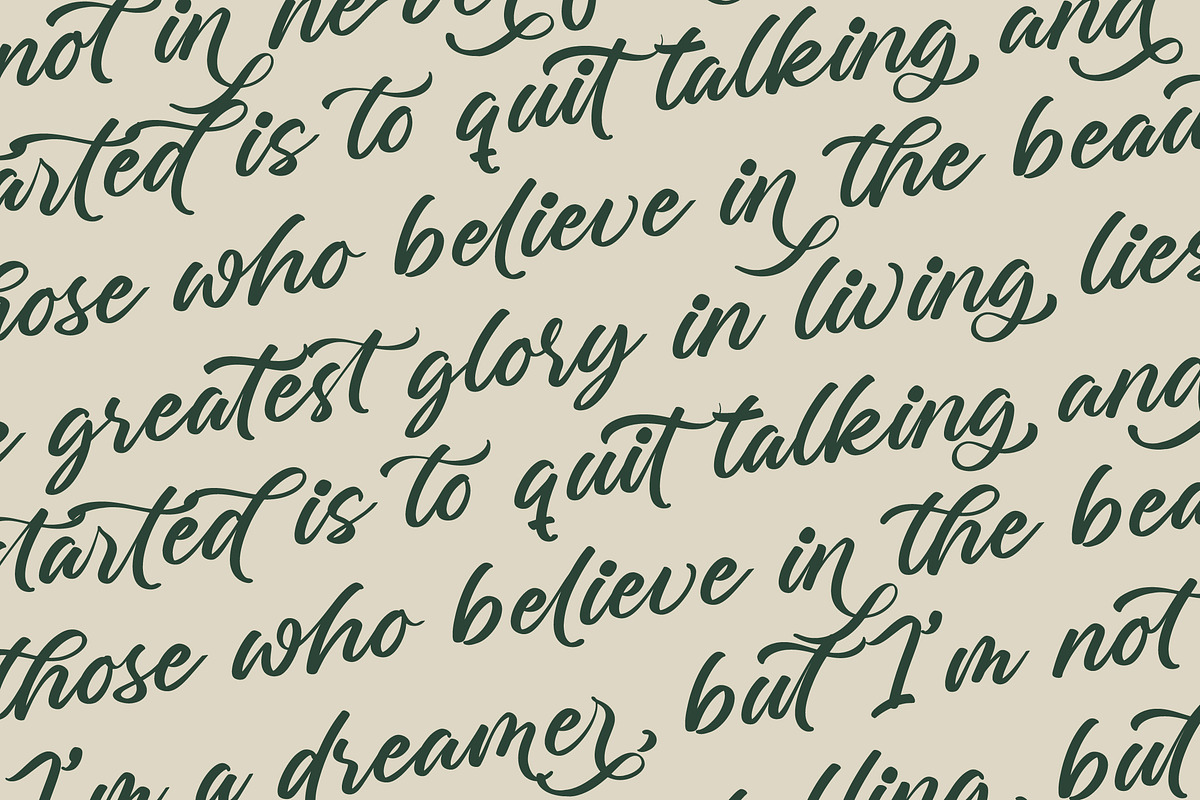 not in
arted is to quit talking and
hose who believe in the beau
e greatest glory in living lies
tarted is to quit talking and
those who believe in the bea
I'm a dreamer, but I'm not
lling, but